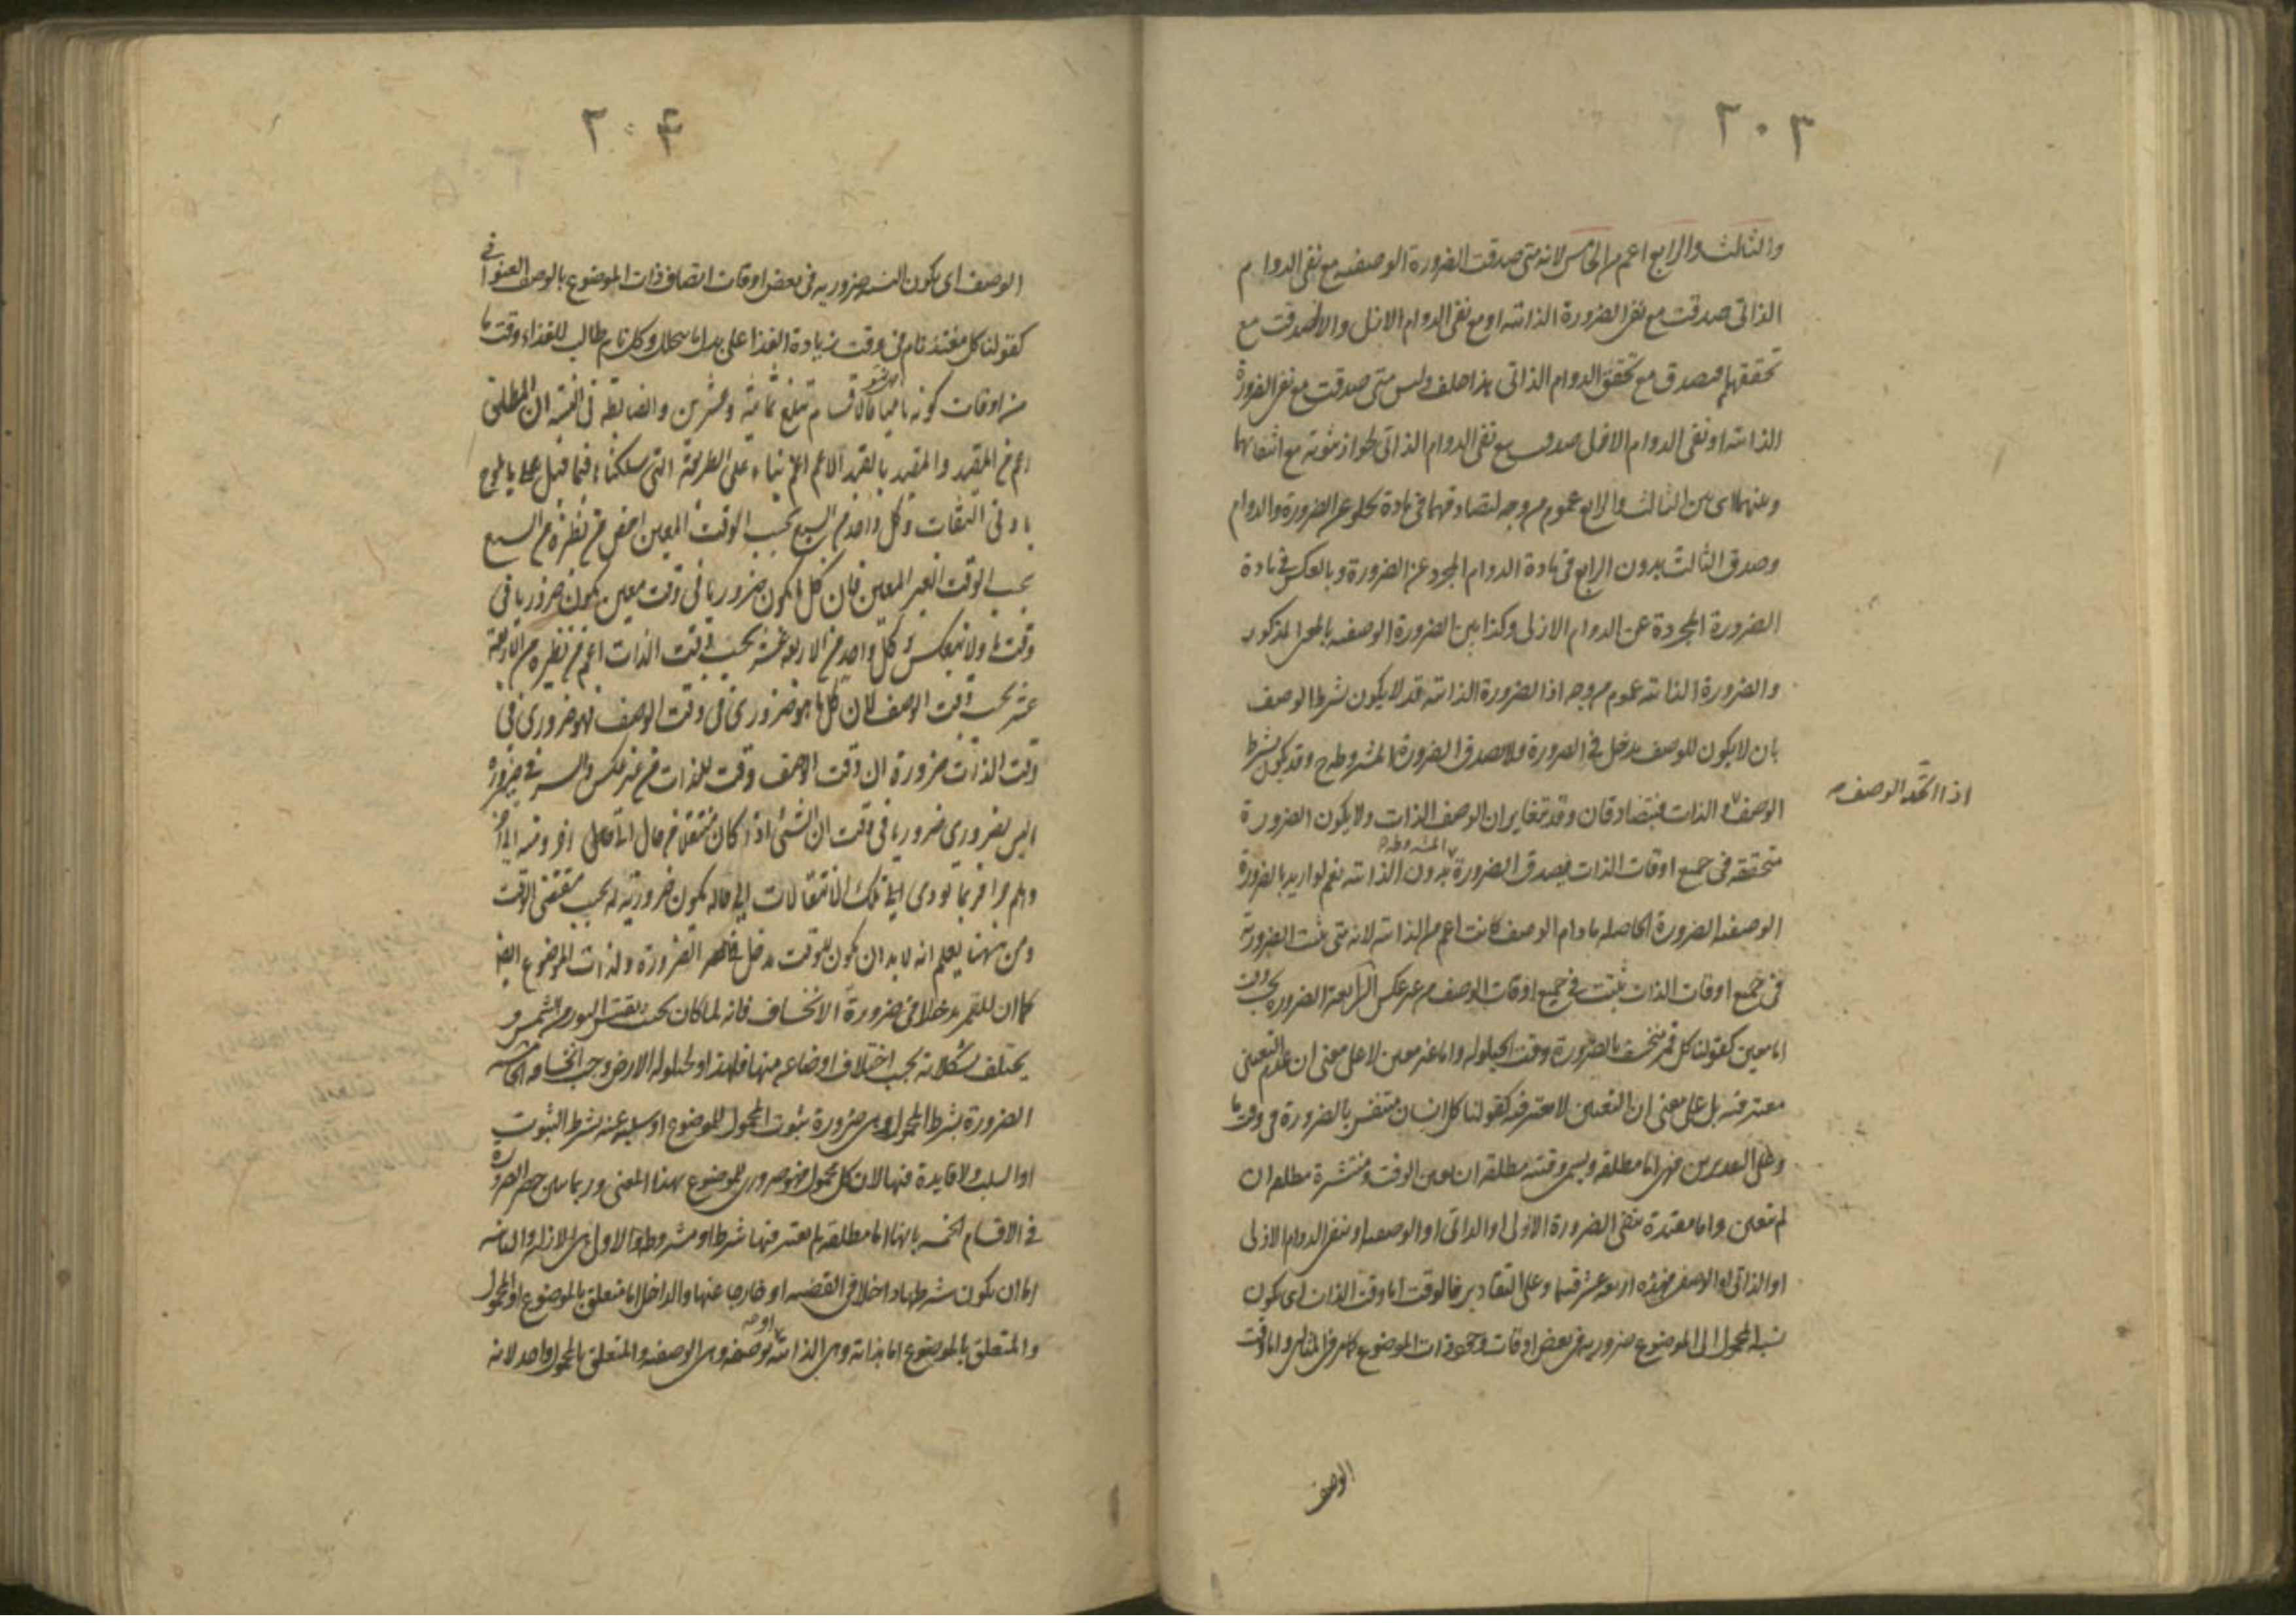 ٢٠٣
والثالث والرابع اعم من الخامس لانه متى صدقت الضرورة الوصفيه مع نفى الدوام
الذاتى صدقت مع نفى الضرورة الذاتيه او مع نفى الدوام الازلى والا لصدقت مع
تحققهما فتصدق مع تحقق الدوام الذاتى هذا خلف وليس متى صدقت مع نفى الضرورة
الذاتيه او نفى الدوام الازلى صدقت مع نفى الدوام الذاتى لجواز ثبوته مع انتفائهما
وبينهما اى بين الثالث والرابع عموم من وجه لتصادقهما فى مادة تخلو عن الضرورة والدوام
وصدق الثالث بدون الرابع فى مادة الدوام المجرد عن الضرورة وبالعكس فى مادة
الضرورة المجردة عن الدوام الازلى وكذا بين الضرورة الوصفيه بالمعنى المذكور
والضرورة الذاتيه عموم من وجه اذ الضرورة الذاتيه قد لا يكون بشرط الوصف
بان لا يكون للوصف مدخل فى الضرورة فلا تصدق الضرورة المشروطة وقد يكون بشرط
اذا اتحد الوصف
الوصف والذات فيتصادقان وقد تغاير ان الوصف الذات ولا يكون الضرورة
المشروطه
متحققه فى جميع اوقات الذات فيصدق الضرورة بدون الذاتيه نعم لو اريد بالضرورة
الوصفيه الضرورة الحاصله مادام الوصف كانت اعم من الذاتيه لانه متى ثبت الضرورة
فى جميع اوقات الذات ثبتت فى جميع اوقات الوصف من غير عكس الرابعة الضرورة بحسب وقت
اما معين كقولنا كل قمر منخسف بالضرورة وقت الحيلوله واما غير معين لا على معنى ان عدم التعيين
معتبر فيه بل على معنى ان التعيين لا يعتبر فيه كقولنا كل انسان متنفس بالضرورة فى وقت ما
وعلى التقديرين فهى اما مطلقه ويسمى وقتيه مطلقه ان تعين الوقت ومنتشرة مطلقه ان
لم تتعين واما مقيدة بنفى الضرورة الازلى او الذاتى او الوصفيه او بنفى الدوام الازلى
او الذاتى او الوصفى فهذه اربعة عشر قسما وعلى التقادير فالوقت اما وقت الذات اى يكون
نسبة المحمول الى الموضوع ضروريه فى بعض اوقات وجود ذات الموضوع كما مر فى المثالين واما وقت
الوصف
٢٠٤
الوصف اى يكون النسبه ضروريه فى بعض اوقات اتصاف ذات الموضوع بالوصف العنوانى
كقولنا كل مغتذ نام فى وقت زيادة الغذا على بدل ما يتحلل وكل نام طالب للغذاء وقت ما
من اوقات كونه ناميا فالاقسام تبلغ ثمانية وعشرين والضابطه فى النسبه ان المطلق
اعم من المقيد والمقيد بالقيد الاعم اعم بناء على الطريقة التى سلكناه فيما قبل على ما يلوح
بادنى التفات وكل واحد من السبع بحسب الوقت المعين اخص من نظيره من السبع
بحسب الوقت الغير المعين فان كل ما يكون ضروريا فى وقت معين يكون ضروريا فى
وقت ما ولا ينعكس وكل واحد من الاربعة عشر بحسب وقت الذات اعم من نظيره من الاربعة
عشر بحسب وقت الوصف لان كل ما هو ضرورى فى وقت الوصف فهو ضرورى فى
وقت الذات ضرورة ان وقت الوصف وقت للذات من غير عكس والسر فى صيرورة
ما ليس بضرورى ضروريا فى وقت ان الشئ اذا كان منتقلا من حال الى اخرى ومنه الى اخرى
وهلم جرا فربما تؤدى الى تلك الانتقالات الى حاله يكون ضرورية له بحسب مقتضى الوقت
ومن ههنا يعلم انه لا بد ان يكون للوقت مدخل فى الضرورة ولذات الموضوع ايضا
كما ان للقمر مدخلا فى ضرورة الانخساف فانه لما كان بحيث يقتبس النور من الشمس و
يختلف تشكلاته بحسب اختلاف اوضاعه منها فلهذا وحيلولة الارض وجب انخسافه الخامسه
الضرورة بشرط المحمول وهى ضرورة ثبوت المحمول للموضوع او سلبه عنه بشرط الثبوت
او السلب ولا فايدة فيها لان كل محمول فهو ضرورى للموضوع بهذا المعنى وربما يبين حصر الضرورة
فى الاقسام الخمسه بانها اما مطلقة لم يعتبر فيها شرط او مشروطة الاول هى الازليه والثانيه
اما ان يكون شرطها داخلا فى القضيه او خارجا عنها والداخل اما متعلق بالموضوع او المحمول
والمتعلق بالموضوع اما بذاته وهى الذاتيه او بوصفه وهى الوصفيه والمتعلق بالمحمول واحد لانه